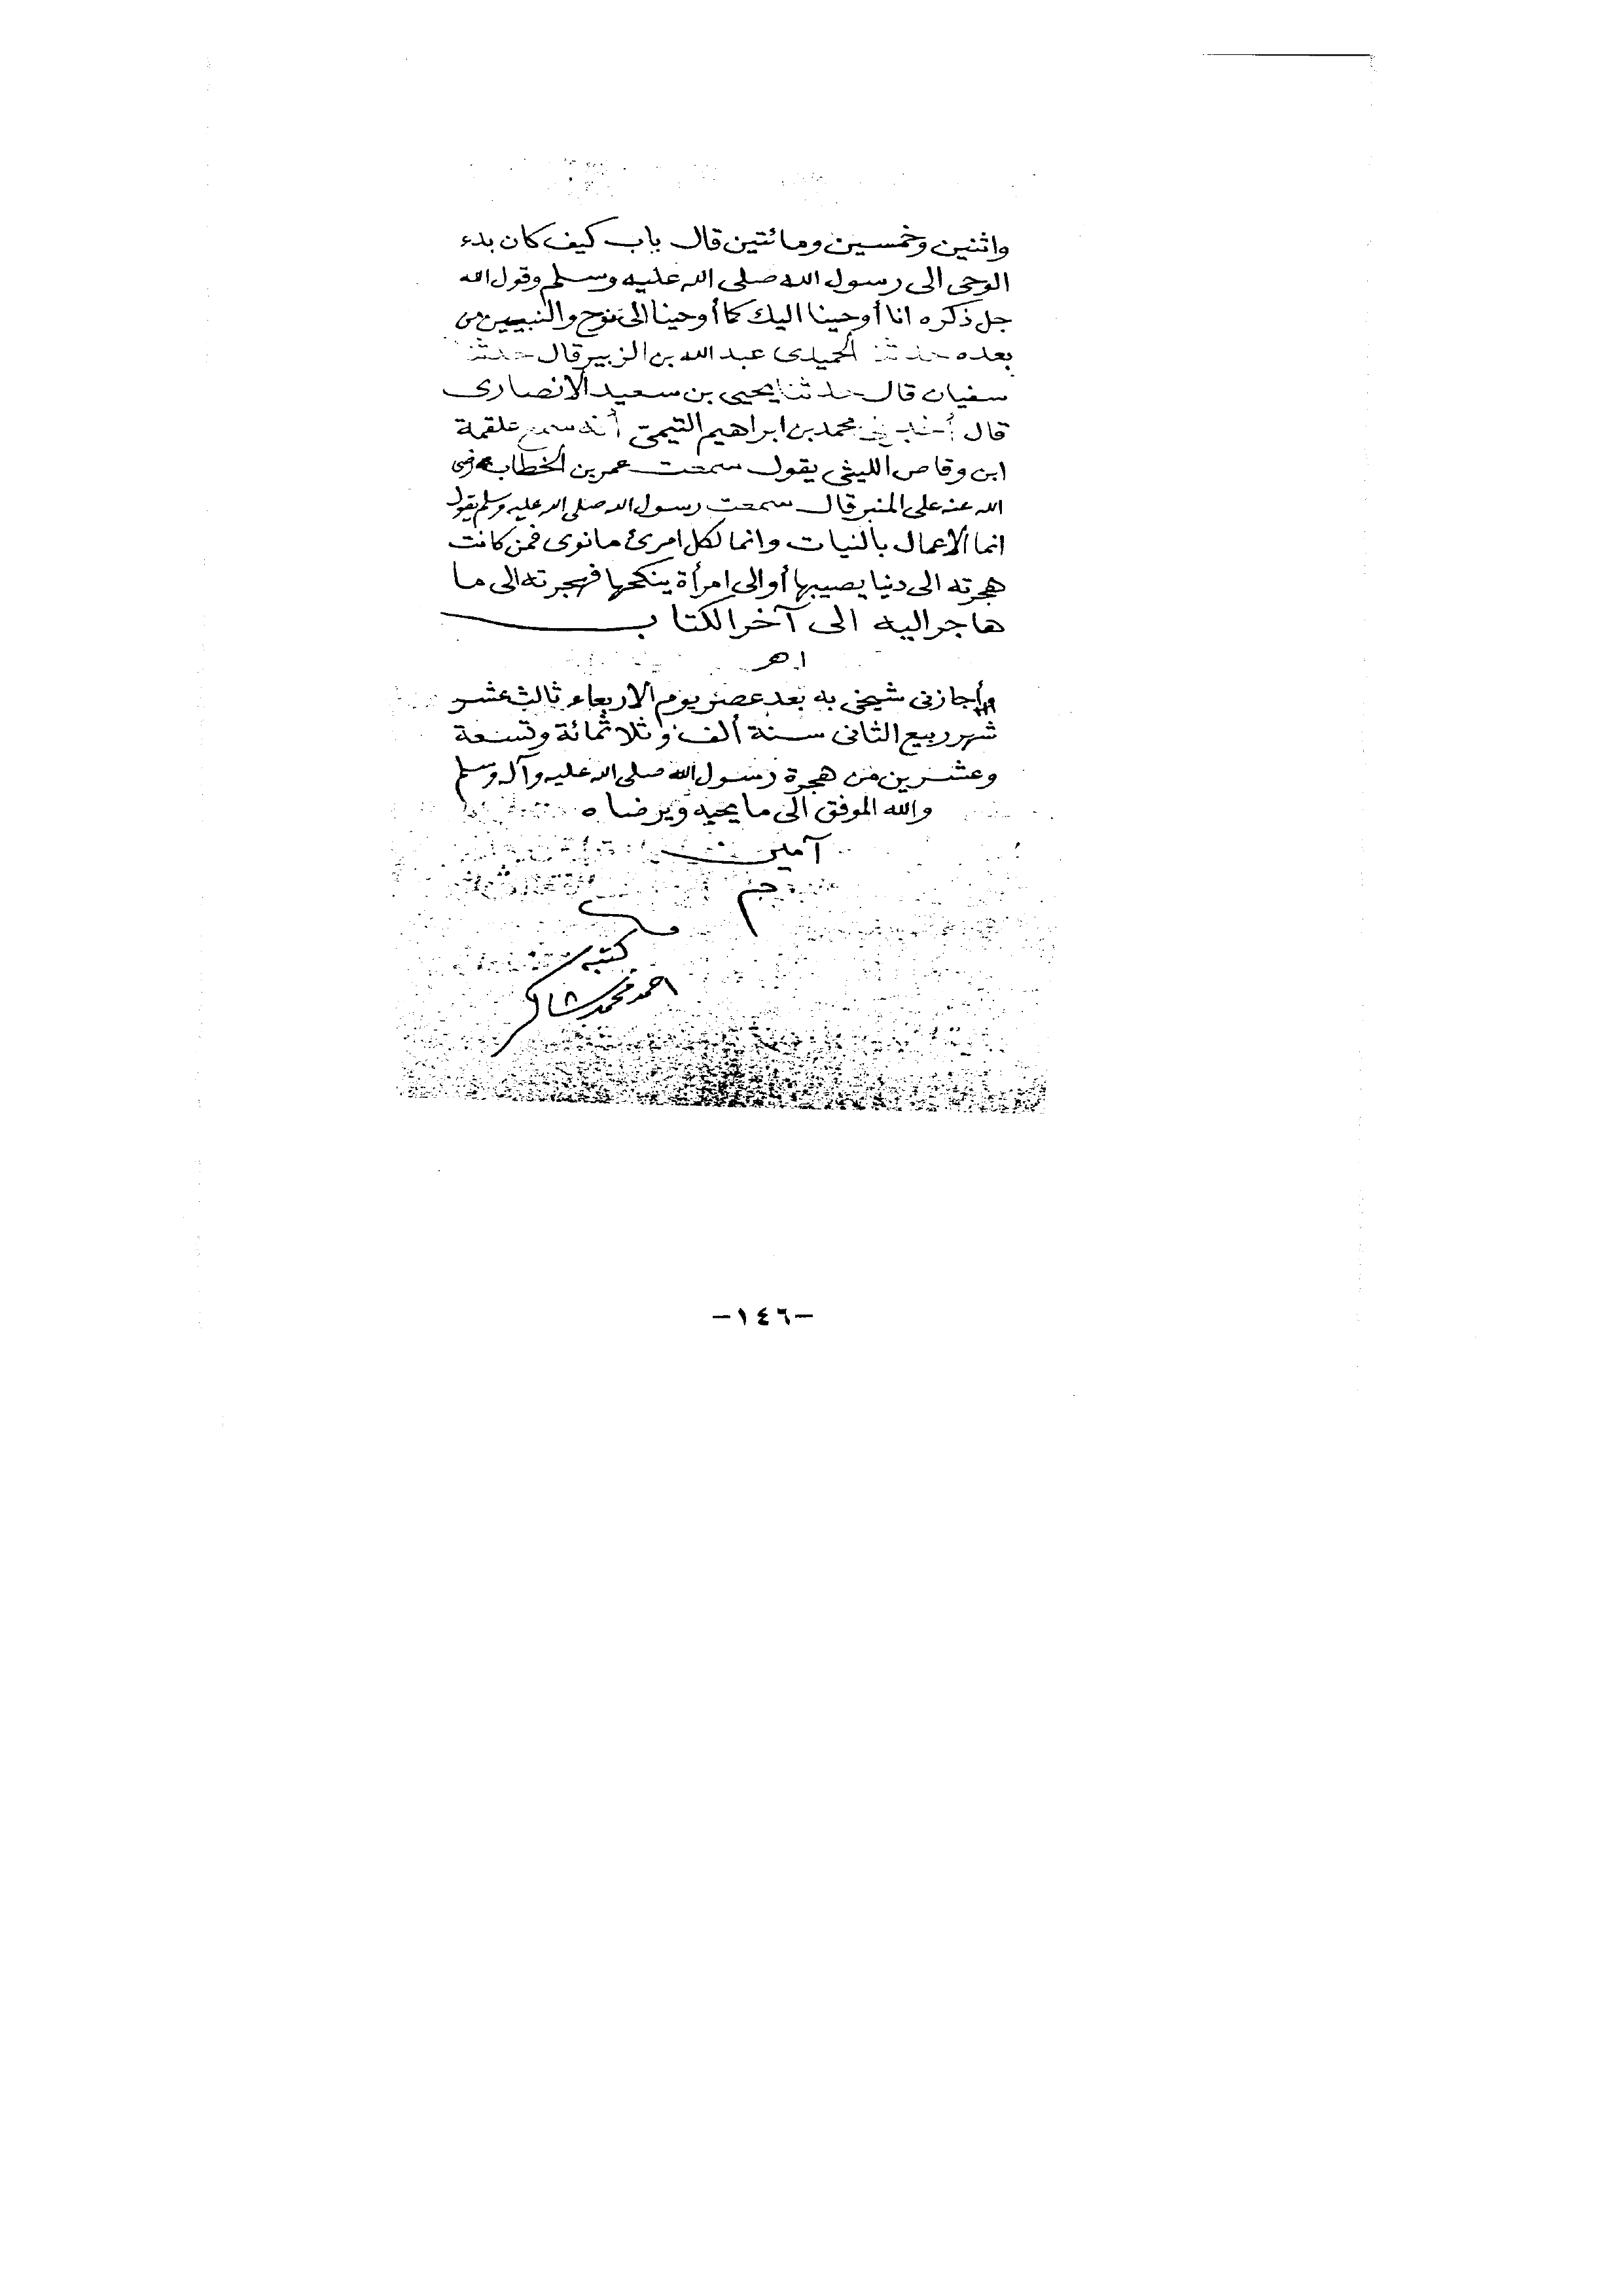 واثنين وخمسين ومائتين قال باب كيف كان بدء
الوحى الى رسول الله صلى الله عليه وسلم وقول الله
جل ذكره انا أوحينا اليك كما أوحينا الى نوح والنبيين من
بعده حدثنا الحميدى عبد الله بن الزبير قال حدثنا
سفيان قال حدثنا يحيى بن سعيد الانصارى
قال أخبرنى محمد بن ابراهيم التيمى أنه سمع علقمة
ابن وقاص الليثى يقول سمعت عمر بن الخطاب رضى
الله عنه على المنبر قال سمعت رسول الله صلى الله عليه وسلم يقول
انما الاعمال بالنيات وانما لكل امرئ ما نوى فمن كانت
هجرته الى دنيا يصيبها أو الى امرأة ينكحها فهجرته الى ما
هاجر اليه الى آخر الكتاب
ا.هـ
وأجازنى شيخى به بعد عصر يوم الاربعاء ثالث عشر
شهر ربيع الثانى سنة ألف وثلاثمائة وتسعة
وعشرين من هجرة رسول الله صلى الله عليه وآله وسلم
والله الموفق الى ما يحبه ويرضاه
آمين
كتبه
احمد محمد شاكر
-١٤٦-